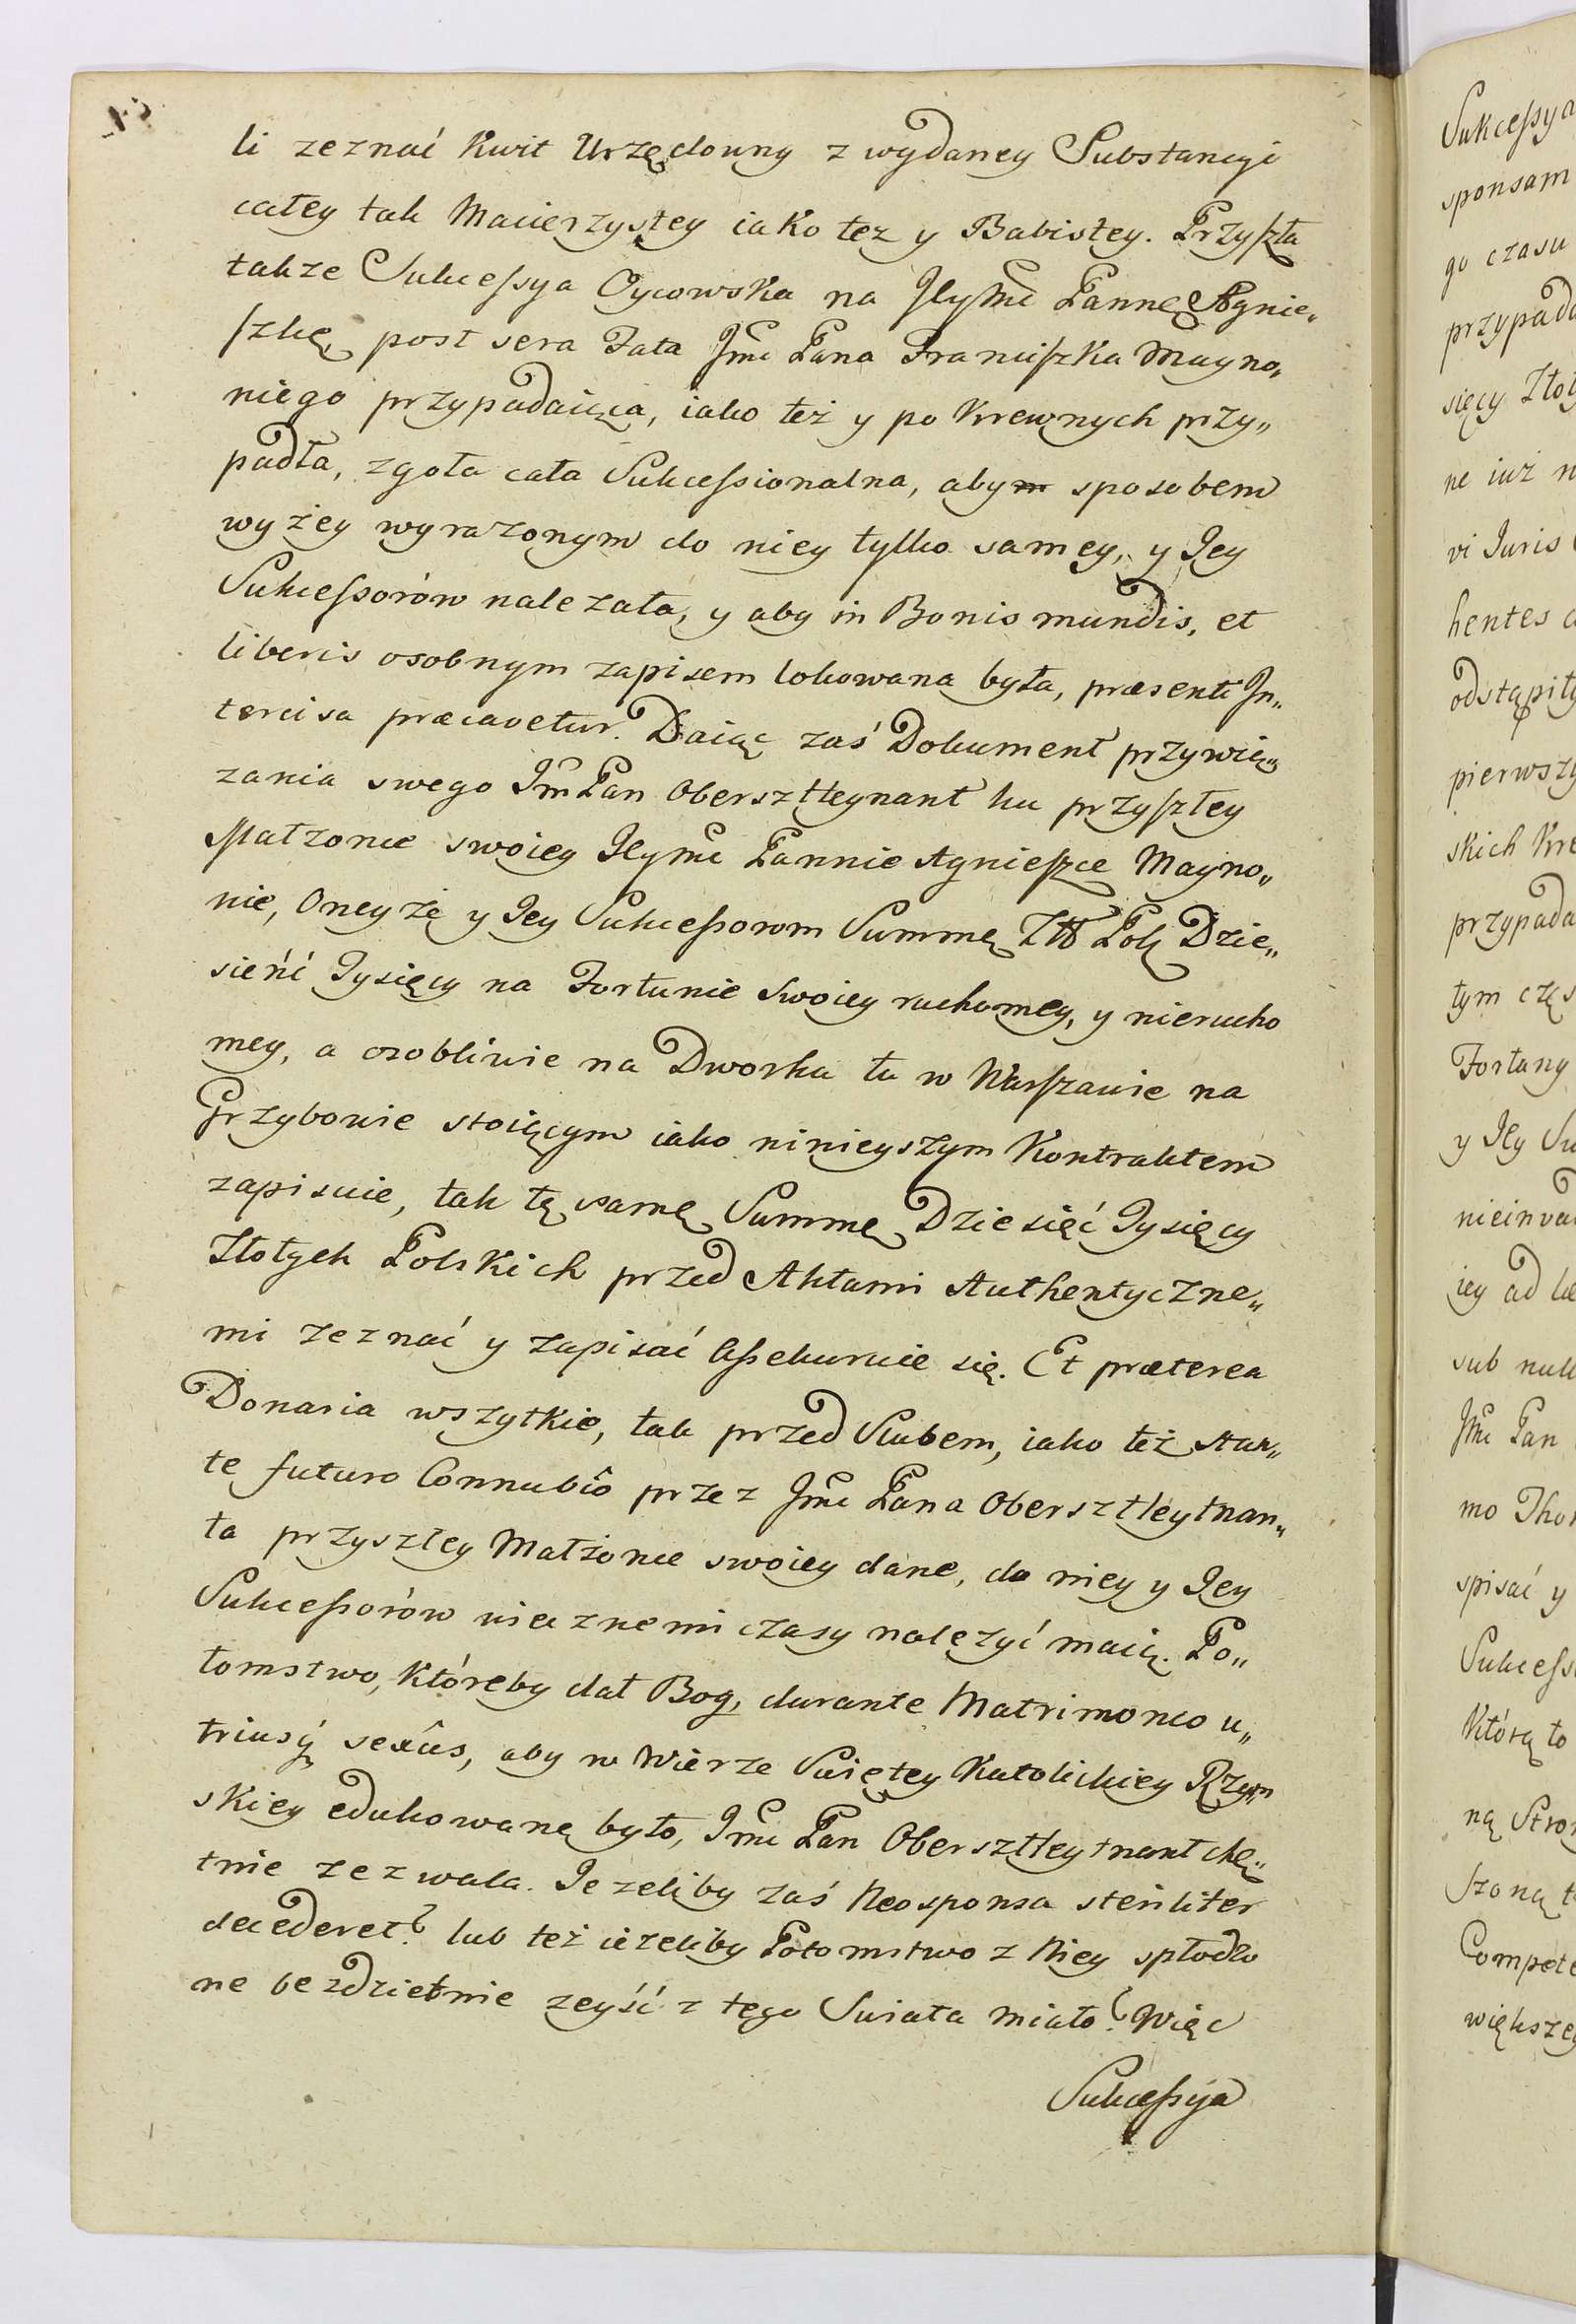 li zeznać Kwit Urzędowny z wydaney Substancyi
całey tak Macierzystey iako tez y Babistey. Przyszła
takze Sukcessya Oycowska na JeyMć Pannę Agnie„
szkę, post sera Fata Jmć Pana Franciszka Magno„
niego przypadaiąca, iako też y po Krewnych przy„
padła, zgoła cała Sukcessionalna, aby sposobem
wyżey wyrazonym do niey tylko samey, y Jey
Sukcessorów nalezała, y aby in Bonis mundis, et
liberis osobnym zapisem lokowana była, præsenti In„
tercisa præcavetur. Daiąc zaś Dokument przywią„
zania swego JmPan Obersztleynant ku przyszłey
Małzonce swoiey Jeymć Pannie Agnieszce Magno„
nie, Oneyże y Jey Sukcessorom Summę Złł Pols Dzie„
sieńć Tysięcy na Fortunie swoiey ruchomey, y nierucho
mey, a osobliwie na Dworku tu w Warszawie na
Grzybowie stoiącym iako ninieyszym Kontraktem
zapisuie, tak tę samę Summę Dziesięć Tysięcy
Złotych Polskich przed Aktami Authentyczne„
mi zeznać y zapisać assekuruie się. Et præterea
Donaria wszytkie, tak przed Slubem, iako też stan„
te futuro Connubiô przez Jmć Pana Obersztleytnan„
ta przyszłey Małżonce swoiey dane, do niey y Jey
Sukcessorów wiecznemi czasy należyć maią. Po„
tomstwo, któreby dał Bog, durante Matrimonio u„
triusq́ sexûs, aby w Wierze Swiętey Katolickiey Rzym
skiey edukowane było, Jmć Pan Obersztleytnant chę„
tnie zezwala. Jezeliby zaś Neosponsa steriliter
decederet? lub też iezeliby Potomstwo z Niey spłodzo
ne bezdzietnie zeyść z tego Swiata miało? Więc
Sukcessya
Sukcessya
sponsam
go czasu
przypada
sięcy Złoty
ne iuż n
vi Juris
hentes
odstąpiły
pierwszy
skich Kre
przypada
tym częs
Fortuny
y Jey Su
nieinva
iey ad
sub null
Jmć Pan
mo Thor
spisać y
Sukcess
Którą to
ną Stron
szoną t
Compete
większey